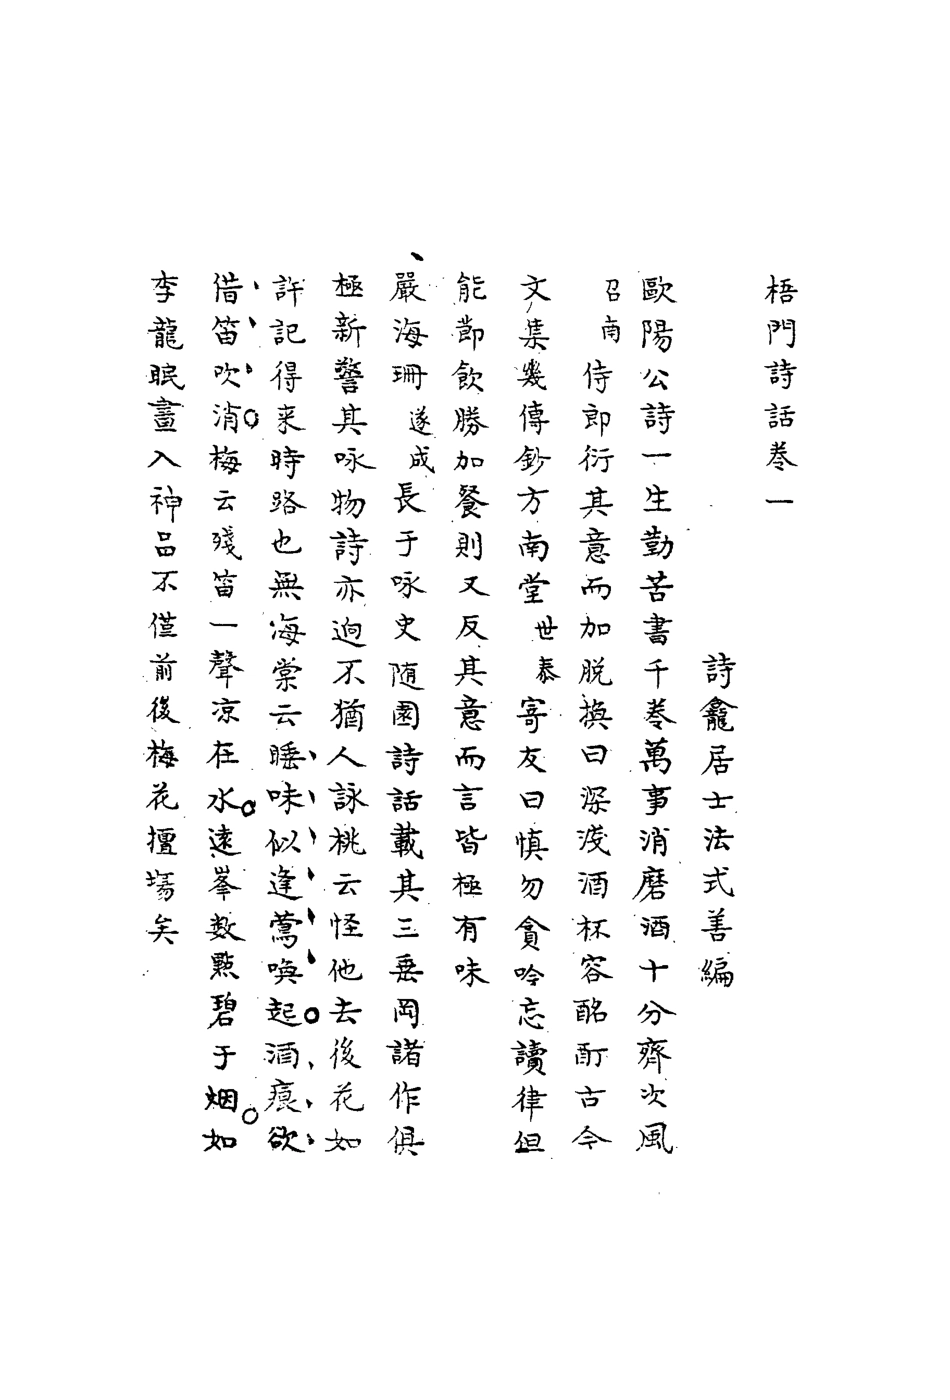 梧門詩話卷一
詩龕居士法式善編
歐陽公詩一生勤苦書千卷萬事消磨酒十分齊次風
召南侍郎衍其意而加脫換曰深淺酒杯容酩酊古今
文集幾傳鈔方南堂世泰寄友曰慎勿貪吟忘讀律但
能節飲勝加餐則又反其意而言皆極有味
嚴海珊遂成長于咏史随園詩話載其三垂岡諸作俱
極新警其咏物詩亦迥不猶人詠桃云怪他去後花如
許記得来時路也無海棠云睡味似逢鶯喚起酒痕欲
借笛吹消梅云殘笛一聲凉在水遠峯數點碧于烟如
李龍眠畫入神品不僅前後梅花擅塲矣